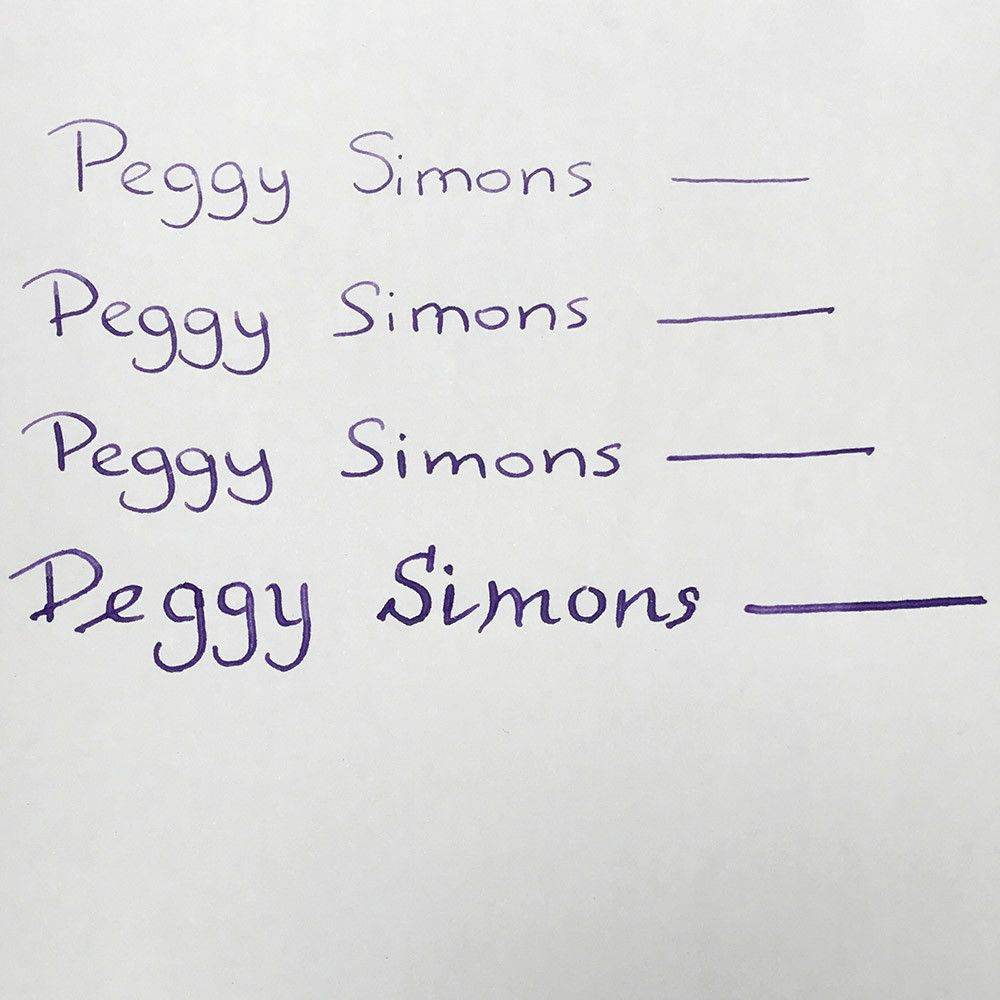 Peggy Simons
Peggy Simons
Peggy Simons
Peggy Simons